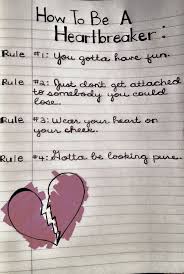 How To Be A
Heartbreaker:
Rule #1: You gotta have fun.
Rule #2: Just don't get attached
to somebody you could
lose.
Rule #3: Wear your heart on
your cheek.
Rule #4: Gotta be looking pure.